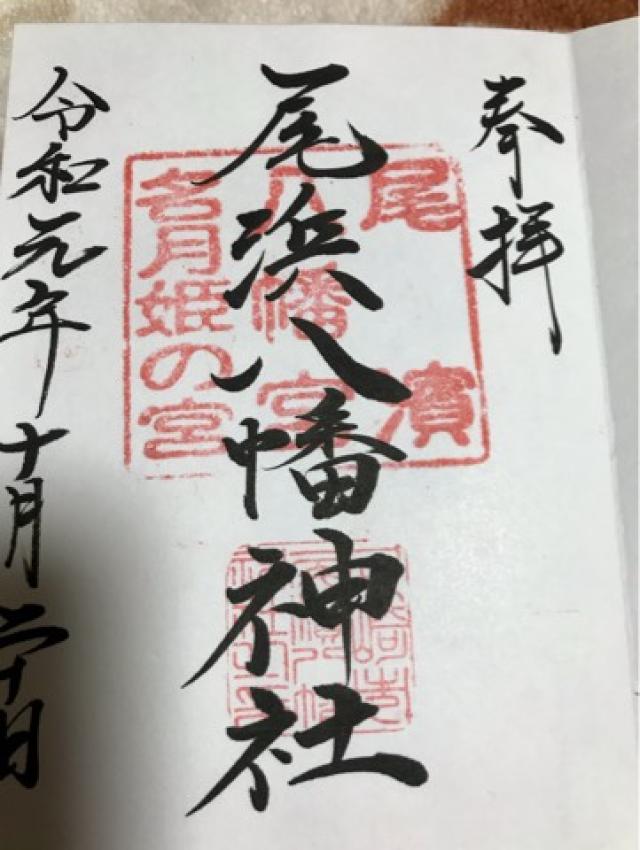 奉拝
尾浜八幡神社
令和元年十月二十日
尾濱
八幡宮
名月姫の宮